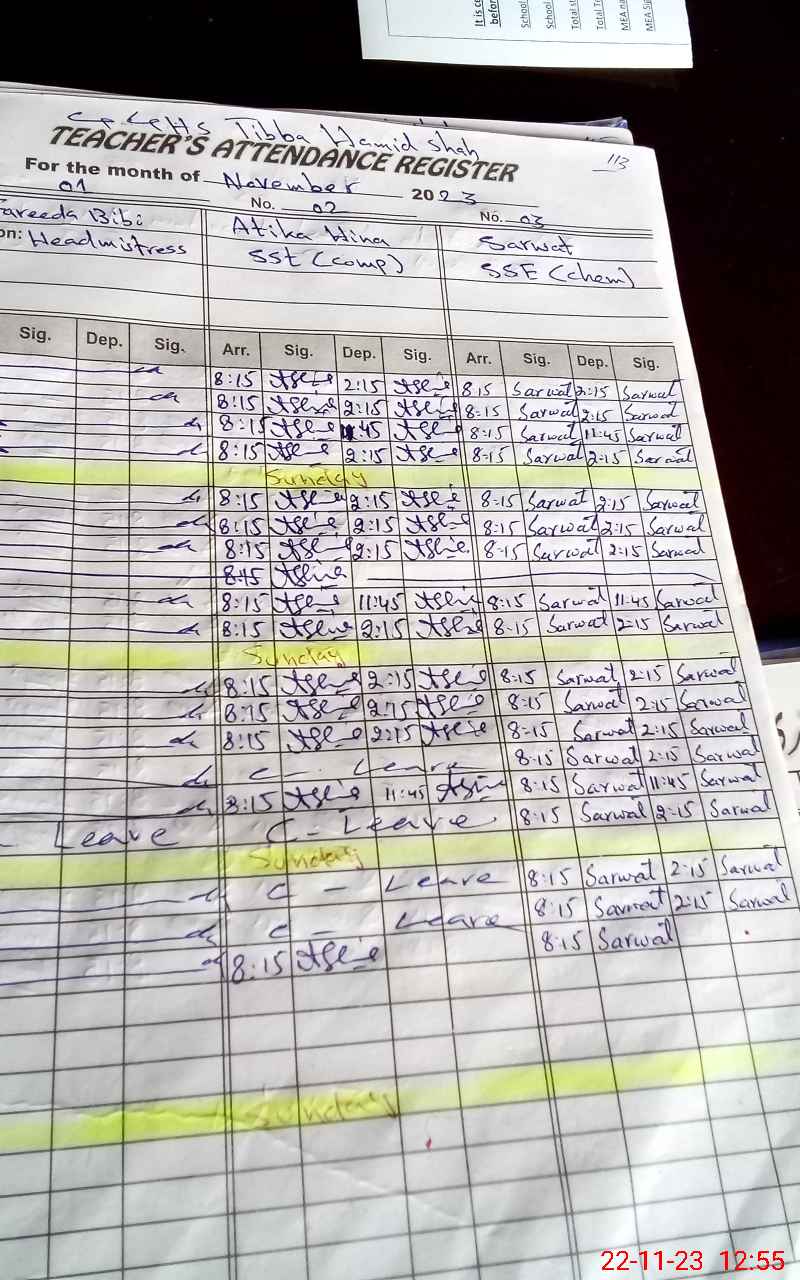 It is ce
befor
School
School
Total st
Total Te
MEA na
MEA Sig
Tibba Hamid Shah
TEACHER'S ATTENDANCE REGISTER
113
For the month of November 2023
01 No. 02 No. 03
areeda Bibi Atika Hina Sarwat
on: Headmistress SSt (comp) SSE (chem)
Sig. Dep. Sig. Arr. Sig. Dep. Sig. Arr. Sig. Dep. Sig.
8:15 2:15 8:15 Sarwat 2:15 Sarwat
8:15 2:15 8:15 Sarwat 2:15 Sarwat
8:15 11:45 8:15 Sarwat 11:45 Sarwat
8:15 2:15 8:15 Sarwat 2:15 Sarwat
Sunday
8:15 2:15 8:15 Sarwat 2:15 Sarwat
8:15 2:15 8:15 Sarwat 2:15 Sarwat
8:15 2:15 8:15 Sarwat 2:15 Sarwat
8:15
8:15 11:45 8:15 Sarwat 11:45 Sarwat
8:15 2:15 8:15 Sarwat 2:15 Sarwat
Sunday
8:15 2:15 8:15 Sarwat 2:15 Sarwat
8:15 2:15 8:15 Sarwat 2:15 Sarwat
8:15 2:15 8:15 Sarwat 2:15 Sarwat
C - Leave 8:15 Sarwat 2:15 Sarwat
8:15 11:45 8:15 Sarwat 11:45 Sarwat
Leave C - Leave 8:15 Sarwat 2:15 Sarwat
Sunday
C - Leave 8:15 Sarwat 2:15 Sarwat
C - Leave 8:15 Sarwat 2:15 Sarwat
8:15 8:15 Sarwat
Sunday
22-11-23 12:55